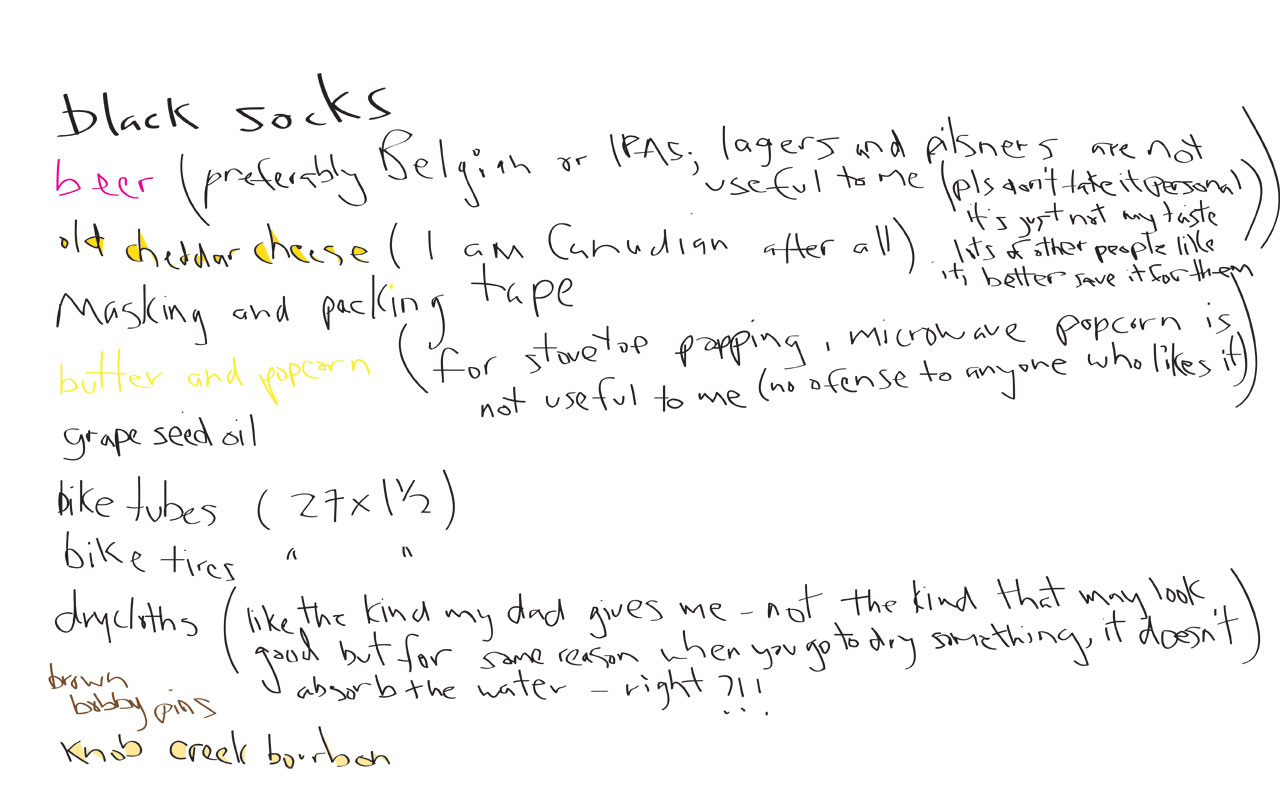 black socks
beer (preferably Belgian or IPAs; lagers and pilsners are not
useful to me (pls don't take it personal)
it's just not my taste
lots of other people like
it, better save it for them))
old cheddar cheese (I am Canadian after all)
Masking and packing tape
butter and popcorn (for stovetop popping, microwave popcorn is
not useful to me (no ofense to anyone who likes it))
grape seed oil
bike tubes (27 x 1 1/2)
bike tires " "
drycloths (like the kind my dad gives me - not the kind that may look
good but for some reason when you go to dry something, it doesn't)
absorb the water - right?!!
brown
bobby pins
Knob creek bourbon